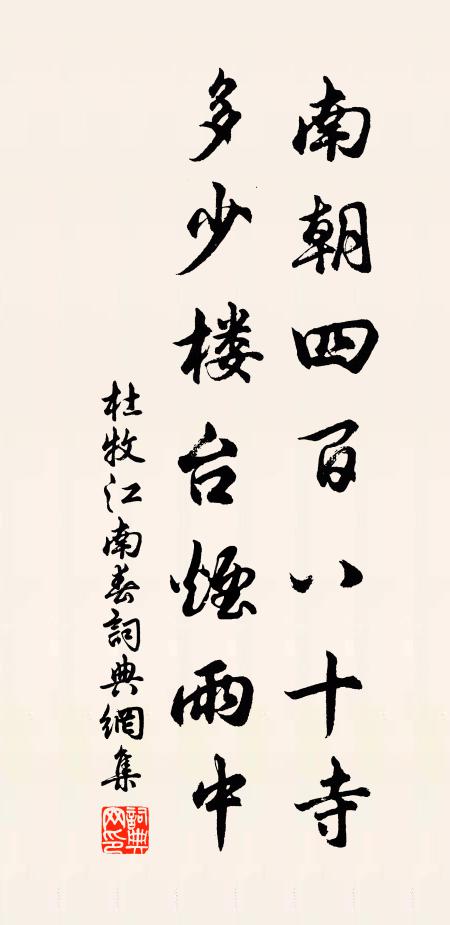 南朝四百八十寺
多少楼台煙雨中
杜牧江南春詞典網集
詞典網印